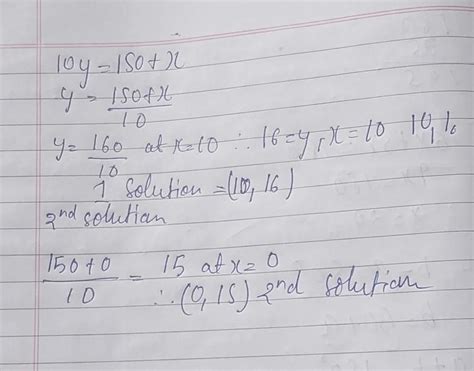 10y = 150+x
y = 150+x / 10
y = 160 / 10 at x=10 ∴ 16=y, x=10 10, 16
1 solution = (10, 16)
2nd solution
150+0 / 10 = 15 at x=0
∴ (0,15) 2nd solution